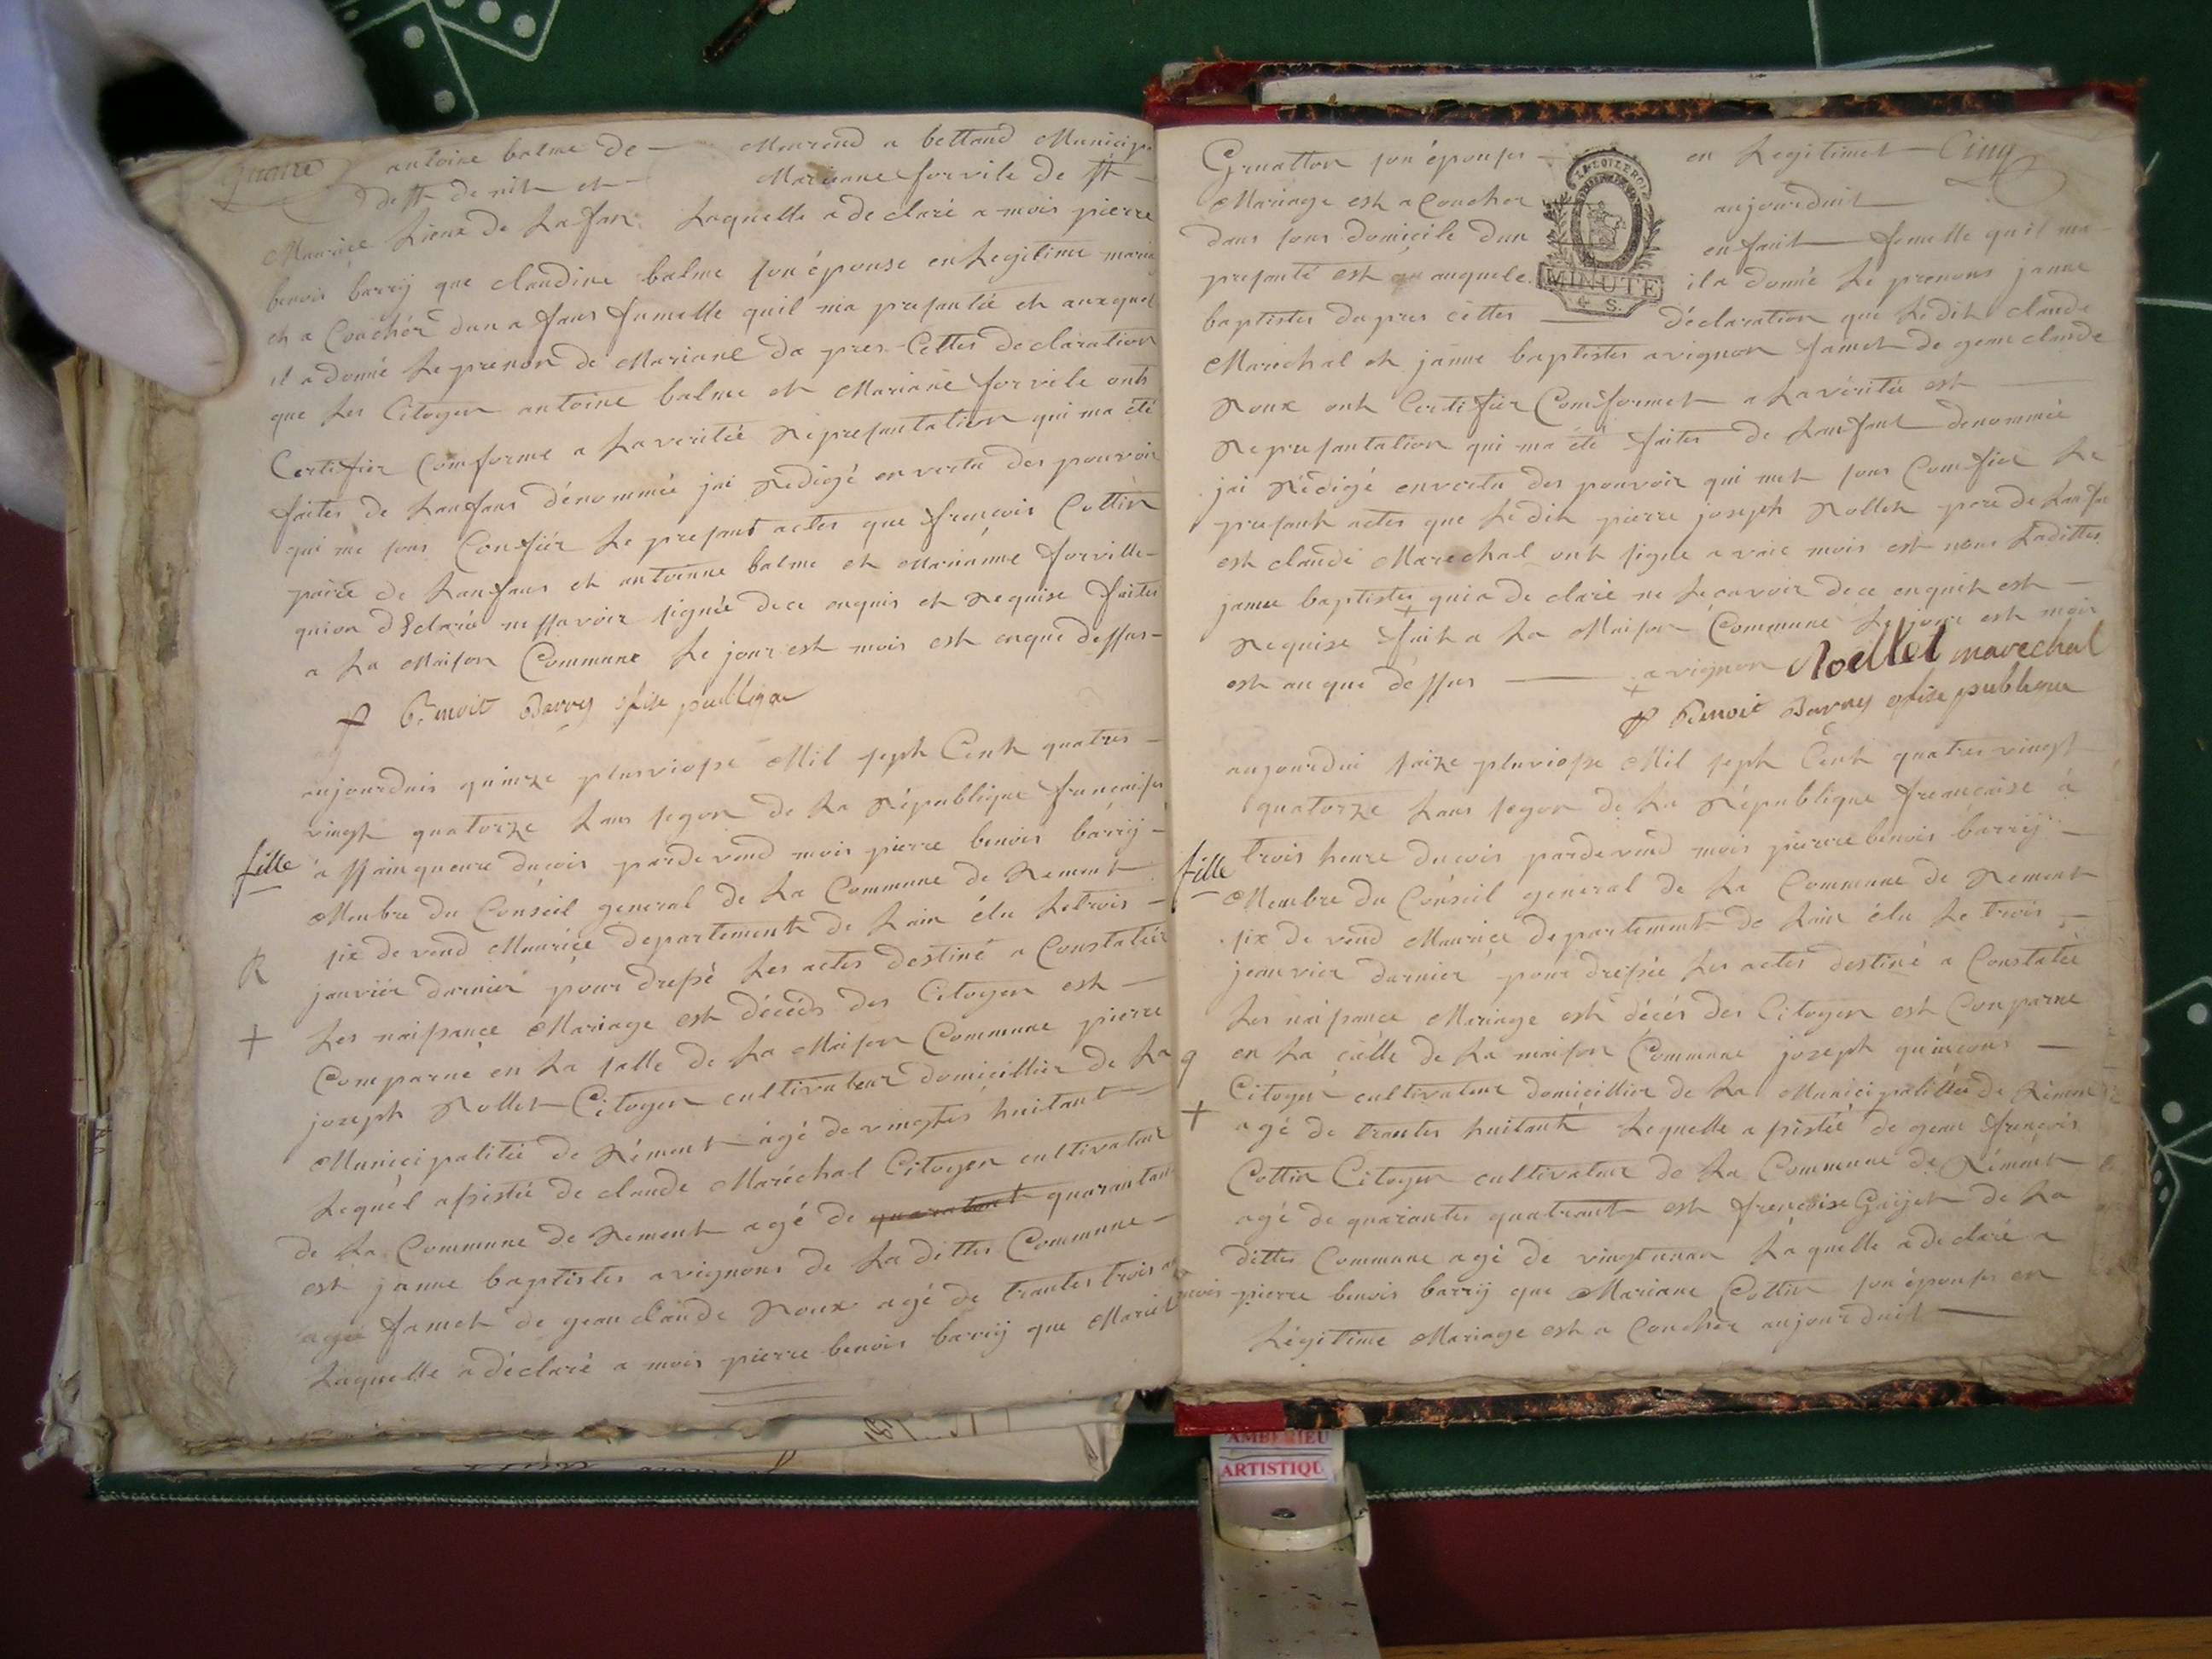 antoine balme de — Maurend a bettand Municip
de st de nih et — Marianne forvile de st —
Maurice Lieux de Lafon. Laquelle a de claré a mois pierre
benois barrÿ que claudine balme son épouse en Legitime maria
et a Couchér dun a fans fumelle quil ma presantée et auxquel
il a donné Le prenon de Mariane da pres Cettes declaration
que Les Citoyen antoine balme et Mariane forvile onts
Certifier Comforme a La veritée Represantation qui ma été
faites de Lanfans dénommée jai Redigé en vertu des pouvoir
qui me sons Confiér Le presans actes que françois Cottin
paire de Lanfans et antoinne balme et Marianne forville —
quion déclaré ne ssavoir signée de ce enquis et Requise faites
a La Maison Commune Le jour est mois est anque dessus —
P Benoit Barrÿ ofise publique
aujourduis quinze pluviose Mil seph Cent quatres —
vingt quatorze Lans segon de La République françaises
fille
à ssainqueure du cois pardevend mois pierre benois barrÿ —
Menbre du Conseil general de La Commune de Rement
six de vend Maurice departement de Lain élu Letrois —
R
janvier darnier pour dressé Les actes destiné a Constatéer
+
Les naissance Mariage est décéds des Citoyen est —
Comparne en La salle de La Maison Commune pierre
joseph Rollet Citoyen cultivateur domicillier de La
Municipalitée de Rément agé de vingtes huitant —
Lequel assistée de claude Maréchal Citoyen cultivateur
de La Commune de Rement agé de quarantant
est janne baptistes avignons de La dittes Commune —
agée famet de gean claude Roux agé de trantes trois
Laquelle a déclaré a mois pierre benois barrÿ que Mariet
Gruatton son épouses en Legitimet Cinq
Mariage est a Coucher aujourduit —
dans sons domicile dun enfanit femelle quil ma —
presanté est auquele il a donné Le prenons janne
MINUTE
4 S.
baptistes dapres cettes — déclaration que Ledit claude
Maréchal et janne baptistes avignon famet de gean claude
Roux ont Certifiér Comformet a La véritée est —
Represantation qui ma été faites de Lanfant denommée
jai Rédigé en vertu des pouvoir qui met sons Comfier Le
presant actes que Ledit pierre joseph Rollet pere de Lanfan
est claude Marechal ont signe a vaic mois est nons Ladittes
janne baptistes quia de claré ne Le cavoir de ce enquit est —
Requise fait a La Maison Commune Le jour est mois
est an que dessus — avignon Noellet marechal
P Benoit Barrÿ ofise publique
aujourdui saize pluviosse Mil seph Cent quatres vingt
quatorze Lans segon de La République freançaise à
fille
trois heure du cois pardevend mois pierre benois barrÿ —
Membre du Conseil general de La Commune de Rement
six de vend Maurice departement de Lain élu Le trois —
jeanvier darnier pour dressée Les actes destiné a Constatée
Les naissance Mariage est décés des Citoyen est Comparne
q
en La salle de La maison Commune joseph quincons —
Citoyen cultivateur domicillier de La Municipalitée de Rément
+
agé de trantes huitant Lequelle assistée de gean françois
Cottin Citoyen cultivateur de La Commune de Rément
agé de quarantes quatrant est françoise Guyet de La
dittes Commune agé de vingtunan Laquelle a declaré a
mois pierre benois barrÿ que Mariane Cottin son épouses en
Légitime Mariage est a Coucher aujourduit —
AMBERIEU
ARTISTIQU